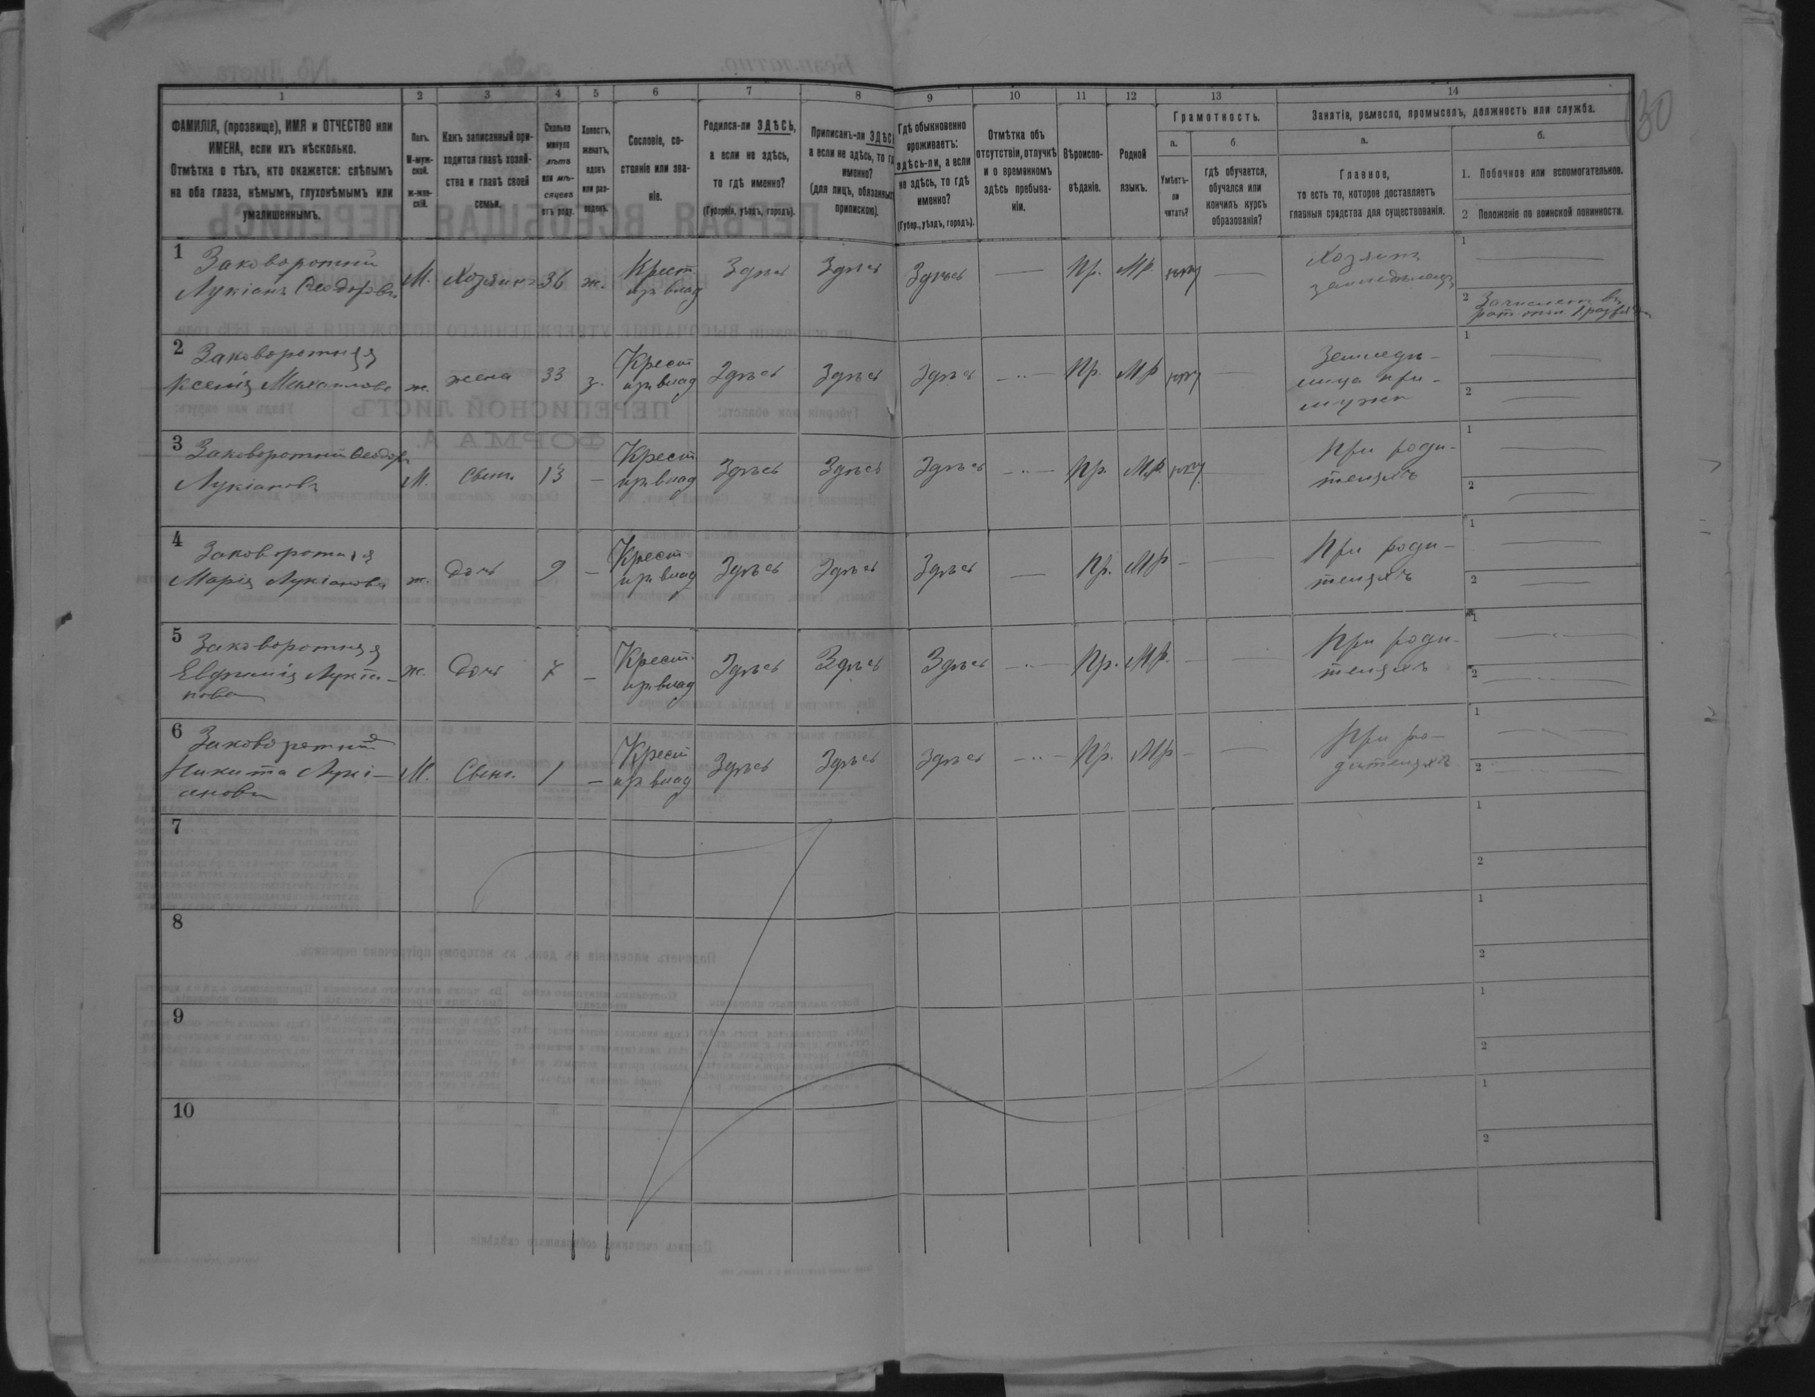 30
1 2 3 4 5 6 7 8 9 10 11 12 13 14
ФАМИЛІЯ, (прозвище), ИМЯ и ОТЧЕСТВО или
ИМЕНА, если ихъ нѣсколько.
Отмѣтка о тѣхъ, кто окажется: слѣпымъ
на оба глаза, нѣмымъ, глухонѣмымъ или
умалишеннымъ.
Полъ.
М-муж-
ской.
ж-жен-
скій.
Какъ записанный при-
ходится главѣ хозяй-
ства и главѣ своей
семьи.
Сколько
минуло
лѣтъ
или мѣ-
сяцевъ
отъ роду.
Холостъ,
женатъ,
вдовъ
или раз-
веденъ.
Сословіе, со-
стояніе или зва-
ніе.
Родился-ли ЗДѢСЬ,
а если не здѣсь,
то гдѣ именно?
(Губернія, уѣздъ, городъ).
Приписанъ-ли ЗДѢСЬ
а если не здѣсь, то гдѣ
именно?
(для лицъ, обязанныхъ
припискою).
Гдѣ обыкновенно
проживаетъ:
здѣсь-ли, а если
не здѣсь, то гдѣ
именно?
(Губер., уѣздъ, городъ).
Отмѣтка объ
отсутствіи, отлучкѣ
и о временномъ
здѣсь пребыва-
ніи.
Вѣроиспо-
вѣданіе.
Родной
языкъ.
Грамотность.
а.
Умѣетъ-
ли
читать?
б
гдѣ обучается,
обучался или
кончилъ курсъ
образованія?
Занятіе, ремесло, промыселъ, должность или служба.
а.
Главное,
то есть то, которое доставляетъ
главныя средства для существованія.
б.
1. Побочное или вспомогательное.
2 Положеніе по воинской повинности.
1 Заковоротній
Лукіанъ Ѳеодоровъ М. Хозяинъ 36 ж. Крест. изъ влад Здѣсь Здѣсь Здѣсь — Пр. Мр. нѣтъ — Хозяинъ
земледѣлецъ
1 —
2 Зачисленъ въ
рат. опол. 1 разряда
2 Заковоротняя
Ксенія Михаилова ж. жена 33 з. Крест изъ влад Здѣсь Здѣсь Здѣсь — Пр. Мр нѣтъ — Земледѣ-
лица при
мужѣ
1 —
2 —
3 Заковоротній Ѳеодоръ
Лукіановъ М. Сынъ. 13 — Крест изъ влад Здѣсь Здѣсь Здѣсь — Пр. Мр нѣтъ — При роди-
теляхъ
1 —
2 —
4 Заковоротняя
Марія Лукіанова ж. Дочь 9 — Крест изъ влад Здѣсь Здѣсь Здѣсь — Пр. Мр — — При роди-
теляхъ
1
2 —
5 Заковоротняя
Евфимія Лукіа-
нова ж. Дочь 7 — Крест. изъ влад Здѣсь Здѣсь Здѣсь — Пр. Мр. — — При роди-
теляхъ
1 —
2 —
6 Заковоротній
Никита Лукі-
ановъ М. Сынъ. 1 — Крест изъ влад Здѣсь Здѣсь Здѣсь — Пр. Мр — — При ро-
дителяхъ
1 —
2 —
7
1
2
8
1
2
9
1
2
10
1
2